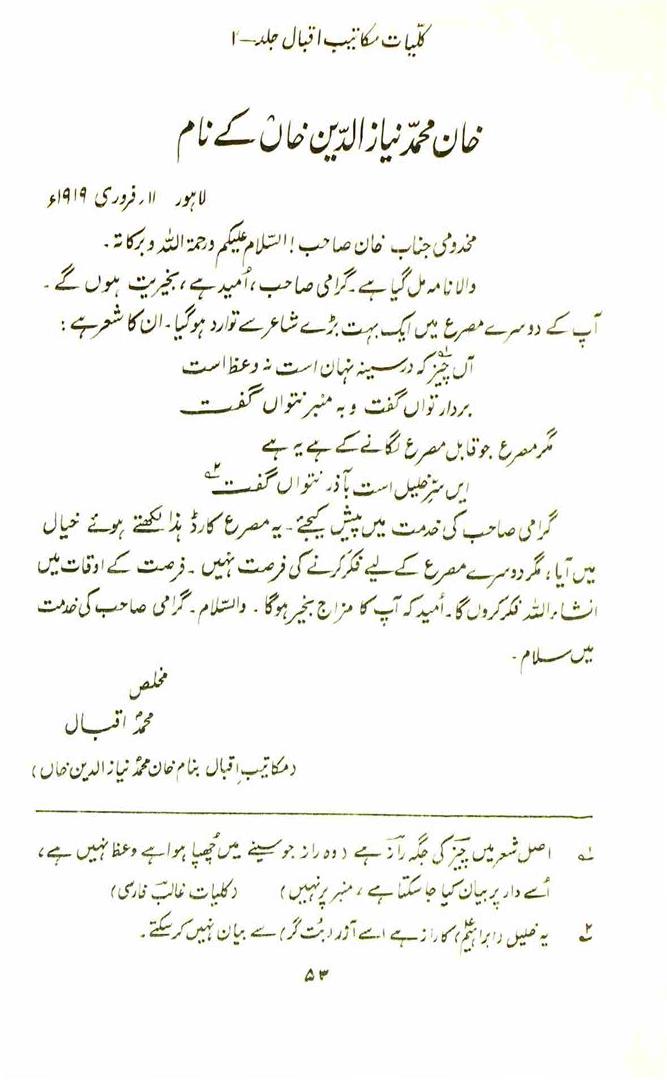 کلیات مکاتیب اقبال جلد-۲
خان محمّد نیاز الدّین خاںؒ کے نام
لاہور ۱۱؍ فروری ۱۹۱۹ء
مخدومی جناب خان صاحب! السّلام علیکم ورحمۃ اللہ وبرکاتہ۔
والا نامہ مل گیا ہے۔ گرامی صاحب، اُمید ہے، بخیریت ہوں گے۔
آپ کے دوسرے مصرع میں ایک بہت بڑے شاعر سے توارد ہوگیا۔ ان کا شعر ہے:
آں چیزؔ۱ کہ در سینہ نہان است نہ وعظ است
بردار تواں گفت و بہ منبر نتواں گفت
مگر مصرع جو قابل مصرع لگانے کے ہے یہ ہے
ایں سرِّ خلیل است بآذر نتواں گفت ۲
گرامی صاحب کی خدمت میں پیش کیجئے۔ یہ مصرع کارڈ ہذا لکھتے ہوئے خیال
میں آیا، مگر دوسرے مصرع کے لیے فکر کرنے کی فرصت نہیں۔ فرصت کے اوقات میں
انشاء اللہ فکر کروں گا۔ اُمید کہ آپ کا مزاج بخیر ہوگا۔ والسّلام۔ گرامی صاحب کی خدمت
میں سلام۔
مخلص
محمدؐ اقبال
(مکاتیبِ اقبال بنام خان محمدؐ نیاز الدین خاں)
۱ اصل شعر میں چیزؔ کی جگہ رازؔ ہے (وہ راز جو سینے میں چھُپا ہوا ہے وعظ نہیں ہے،
اُسے دار پر بیان کیا جا سکتا ہے، منبر پر نہیں) (کلیات غالبؔ فارسی)
۲ یہ خلیل (ابراہیمؑ) کا راز ہے اسے آزر (بُت گر) سے بیان نہیں کر سکتے۔
۵۳